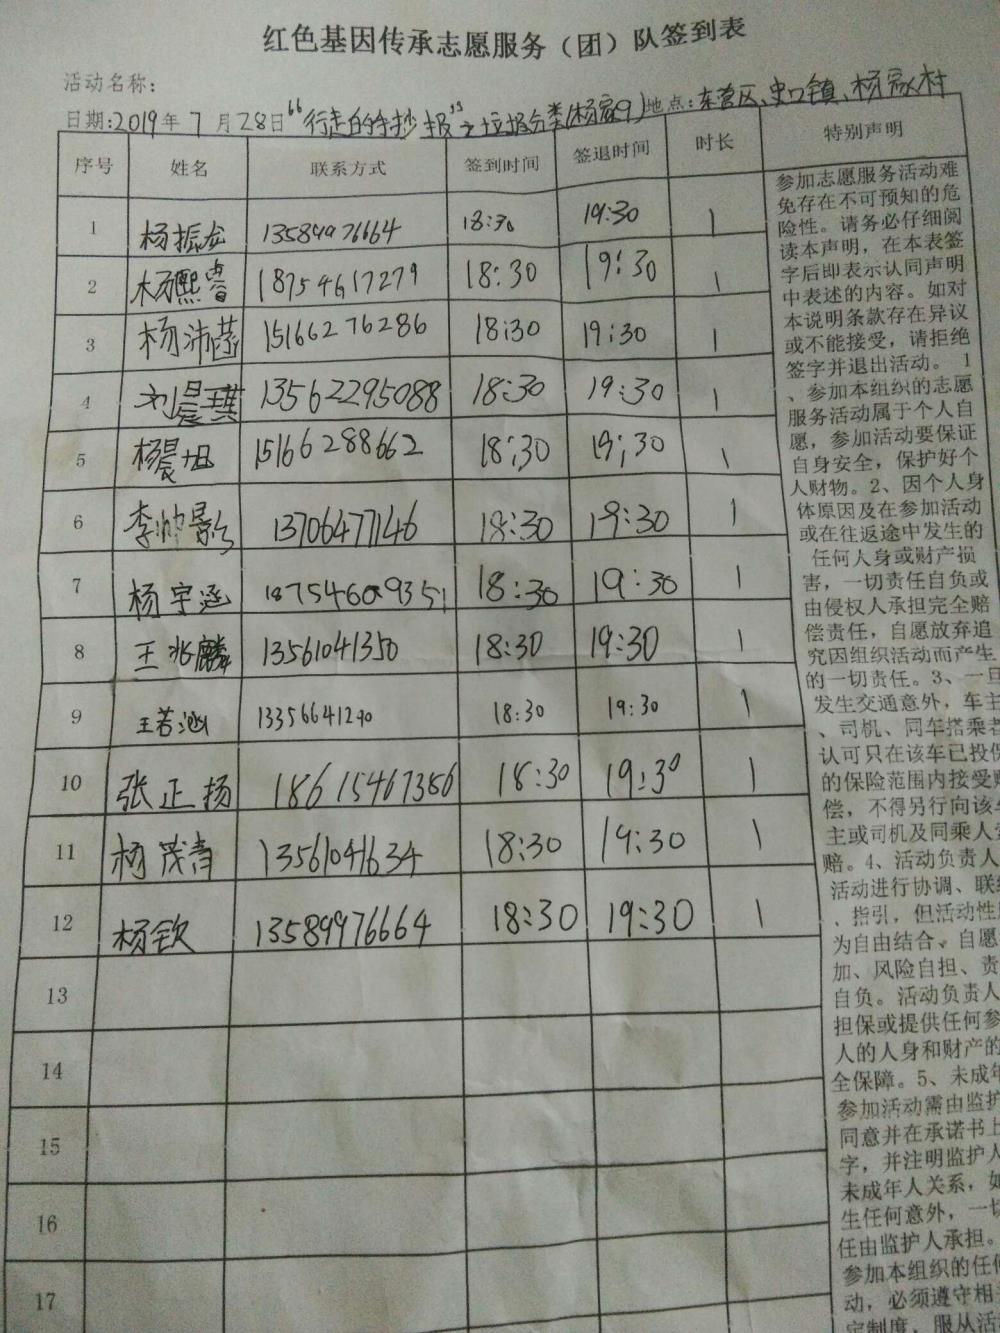 红色基因传承志愿服务（团）队签到表
活动名称：
日期:2019年 7 月28日“行走的手抄报”之垃圾分类(杨家9)地点:东营区、史口镇、杨家村
序号 姓名 联系方式 签到时间 签退时间 时长 特别声明
1 杨振龙 13589976664 18:30 19:30 1
2 杨熙睿 18754617279 18:30 19:30 1
3 杨沛菡 15166276286 18:30 19:30 1
4 刘晨琪 13562295088 18:30 19:30 1
5 杨晨旭 15166288662 18:30 19:30 1
6 李帅影 13706477146 18:30 19:30 1
7 杨宇涵 18:30 19:30 1
8 王兆麟 13561041350 18:30 19:30 1
9 王若涵 13356641290 18:30 19:30 1
10 张正扬 18615467386 18:30 19:30 1
11 杨茂青 13561041634 18:30 19:30 1
12 杨钦 13589976664 18:30 19:30 1
13
14
15
16
17
参加志愿服务活动难
免存在不可预知的危
险性。请务必仔细阅
读本声明，在本表签
字后即表示认同声明
中表述的内容。如对
本说明条款存在异议
或不能接受，请拒绝
签字并退出活动。 1
、参加本组织的志愿
服务活动属于个人自
愿，参加活动要保证
自身安全，保护好个
人财物。2、因个人身
体原因及在参加活动
或在往返途中发生的
任何人身或财产损
害，一切责任自负或
由侵权人承担完全赔
偿责任，自愿放弃追
究因组织活动而产生
的一切责任。3、一旦
发生交通意外，车主
、司机、同车搭乘者
认可只在该车已投保
的保险范围内接受赔
偿，不得另行向该车
主或司机及同乘人索
赔。4、活动负责人
活动进行协调、联络
、指引，但活动性质
为自由结合、自愿
加、风险自担、责
自负。活动负责人
担保或提供任何参
人的人身和财产的
全保障。5、未成年
参加活动需由监护
同意并在承诺书上
字，并注明监护人
未成年人关系，如
生任何意外，一切
任由监护人承担。
参加本组织的任何
动，必须遵守相
定制度，服从活